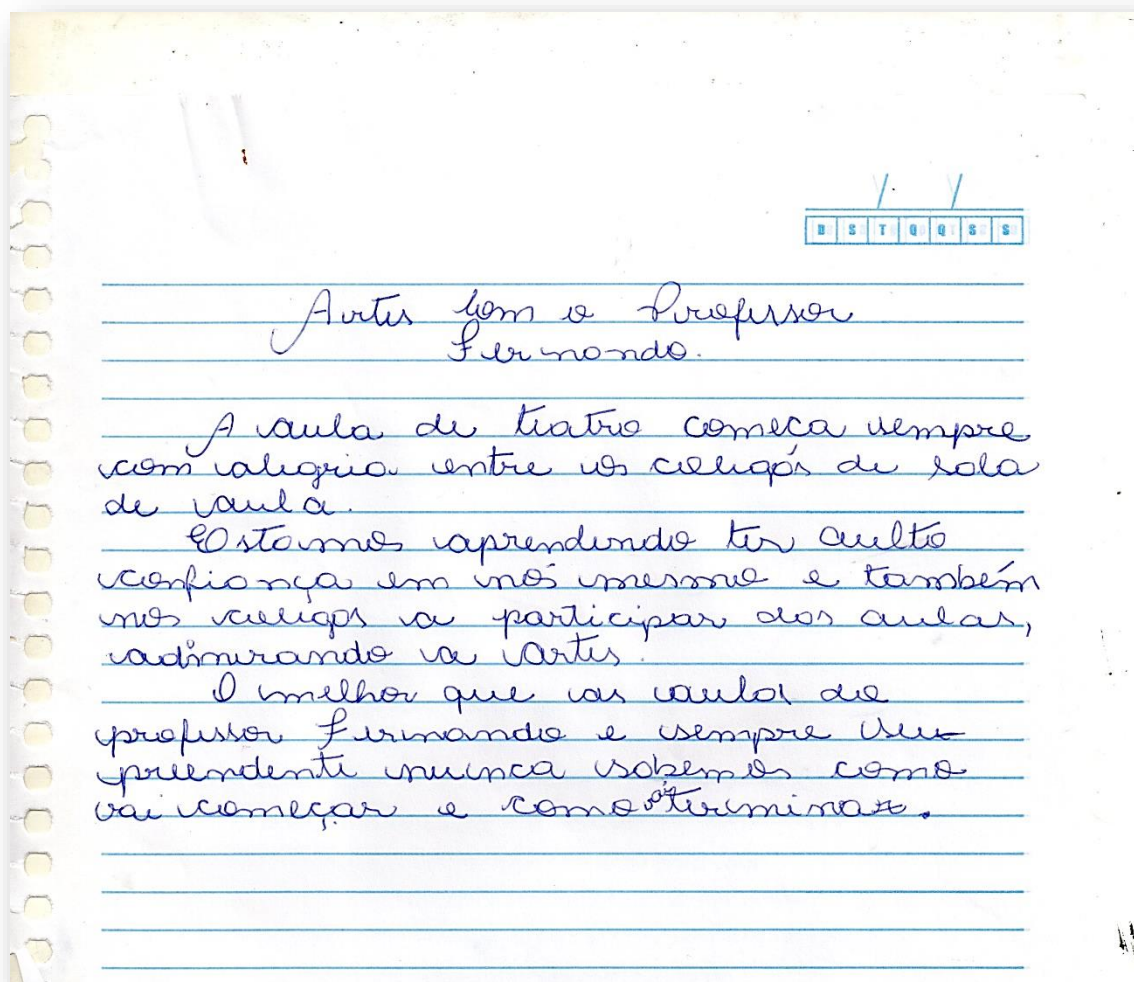 D S T Q Q S S
Artes com o Professor
Fernando.
A aula de teatro começa sempre
com alegria entre os colegas de sala
de aula.
Estamos aprendendo ter aulto
confiança em nós mesmo e também
nos colegas a participar das aulas,
admirando a artes.
O melhor que as aulas do
professor Fernando e sempre sur
preendente nunca sabemos como
vai começar e como vai terminar.